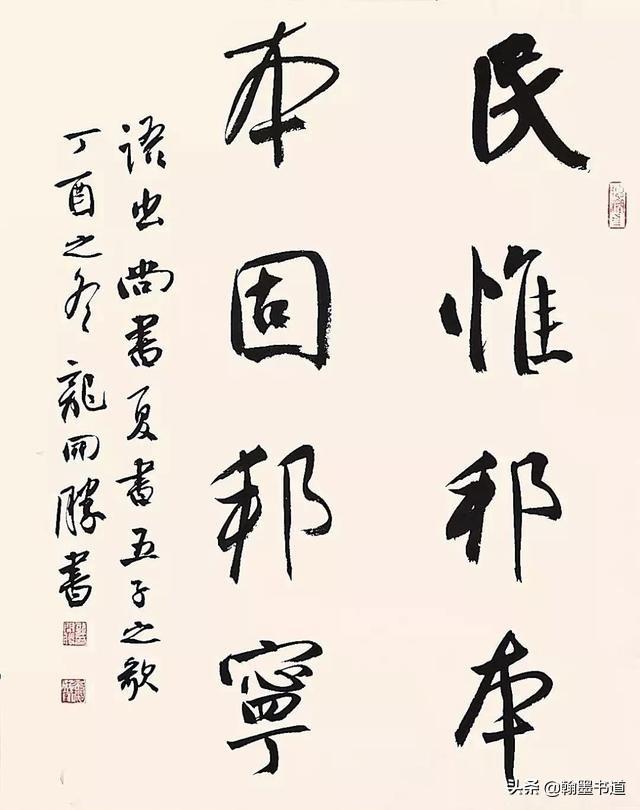 民惟邦本
本固邦寧
语出尚書夏書五子之歌
丁酉之冬龍開勝書
头条 @翰墨书道